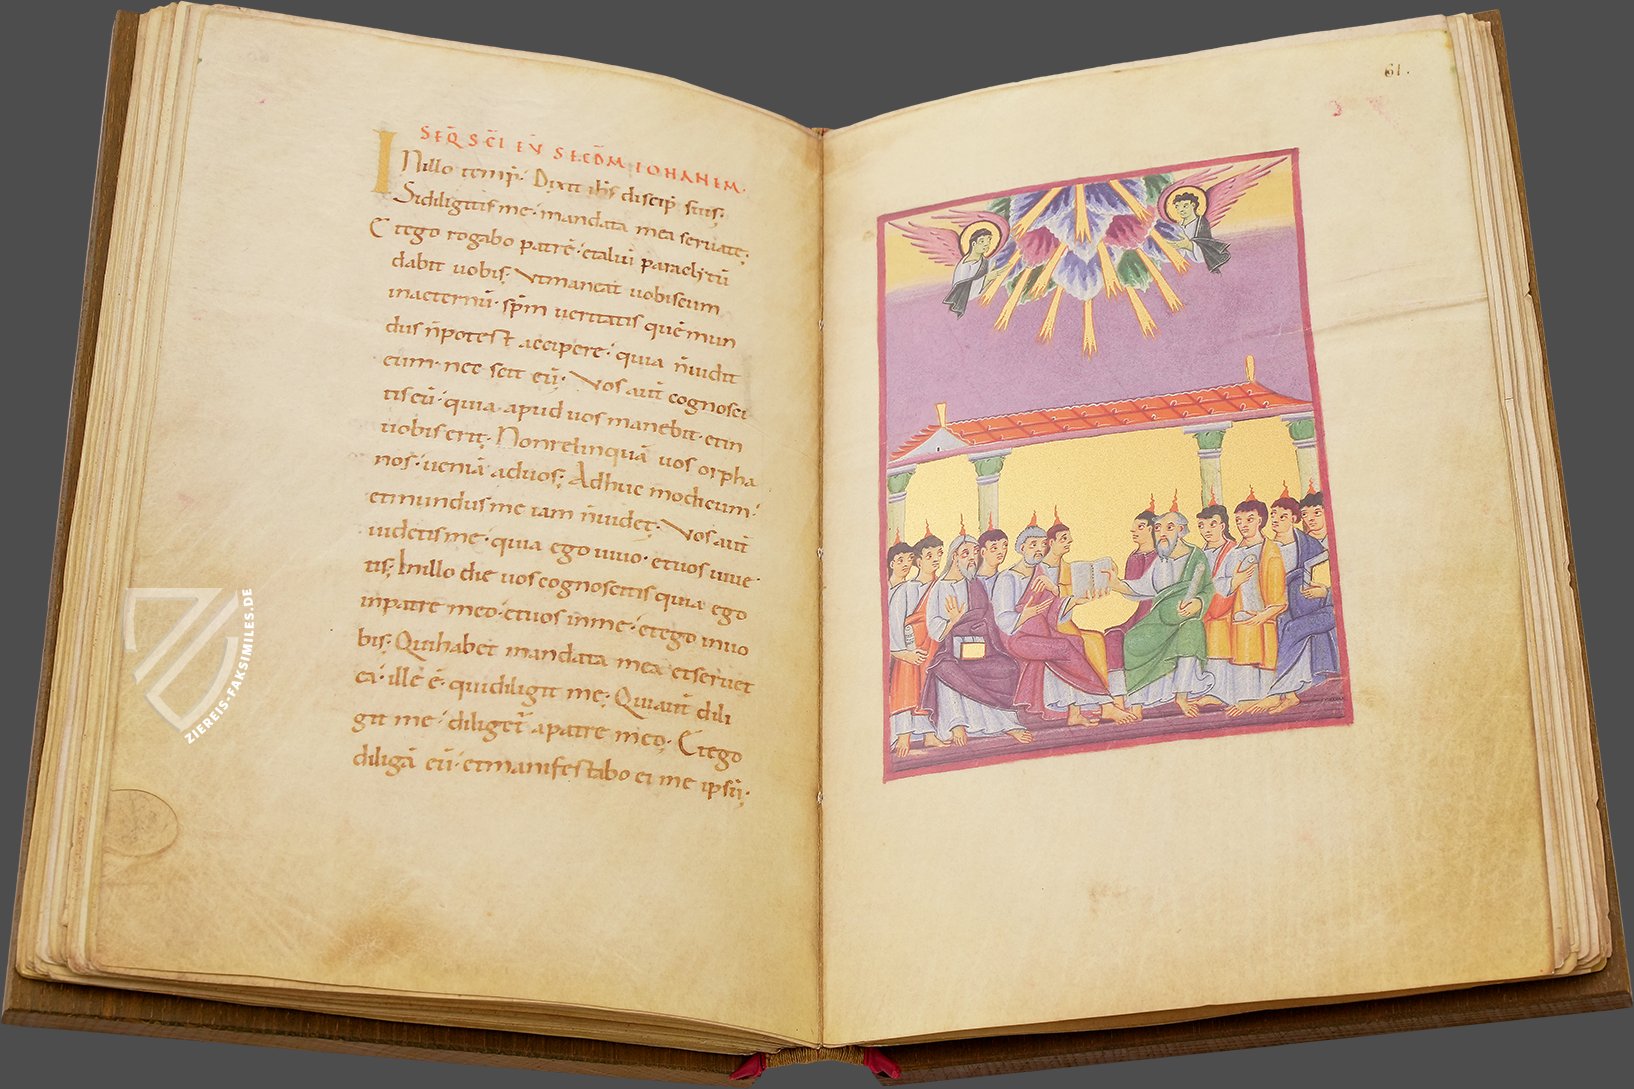 SEQ̄ SC̄I EV̄ SECDM̄ IOHANEM·
INillo temp̄· Dixit ih̄s discip̄ suis;
Sidiligitis me· mandata mea seruate;
Etego rogabo patrē· etaliū paraclytū
dabit uobis; Vtmaneat uobiscum
inaeternū· sp̄m ueritatis quēmun
dus n̄potest accipere· quia n̄uidit
eum· nec scit eū; Vos aūt cognosce
tis eū· quia apud uos manebit· etin
uobis erit; Nonrelinquā uos orpha
nos· ueniā aduos; Adhuc modicum·
etmundus me iam n̄uidet; Vos aūt
uidetis me· quia ego uiuo· etuos uiue
tis; Inillo die uos cognoscetis quia ego
inpatre meo· etuos inme· etego inuo
bis; Quihabet mandata mea etseruat
ea· ille ē· quidiligit me; Quiaūt dili
git me· diliget̄ apatre meo; Etego
diligā eū· etmanifestabo ei me ipsū;
61.
ZIEREIS-FAKSIMILES.DE